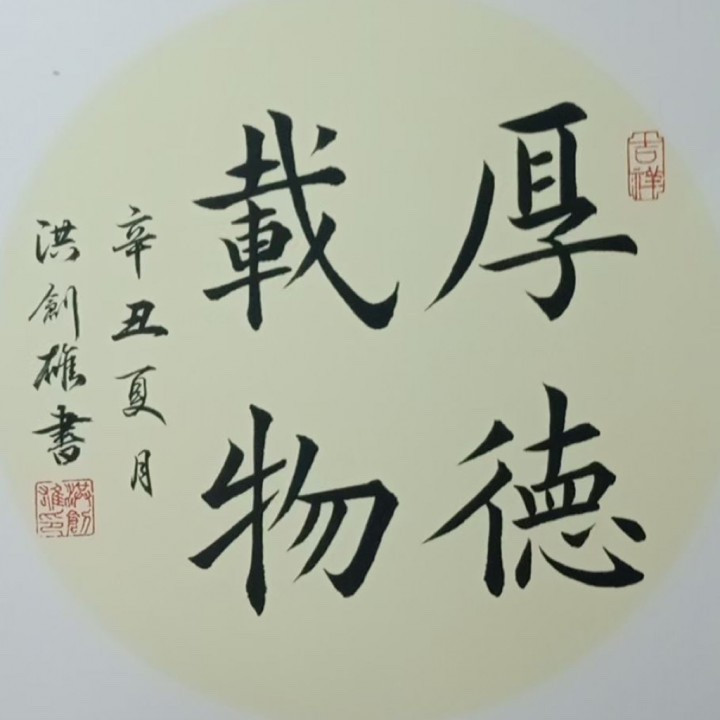 吉祥
厚德
載物
辛丑夏月
洪劍雄書
洪劍
雄印